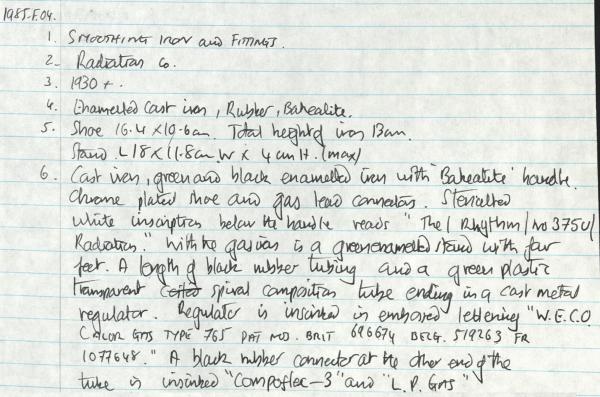 1985.F.04.
1. SMOOTHING IRON and FITTINGS.
2. Radiation Co.
3. 1930 +.
4. Enamelled Cast iron, Rubber, Bakealite.
5. Shoe 16.4 x 10.6cm. Total height of iron 13cm.
Stand L18 x 11.8cm W x 4cm H. (max)
6. Cast iron, green and black enamelled iron with 'Bakealite' handle.
Chrome plated shoe and gas lead connectors. Stencilled
White inscription below the handle reads "The / Rhythm / No 375U /
Radiation." With the gas iron is a green enamelled stand with four
feet. A length of black rubber tubing and a green plastic
transparent spiral composition tube ending in a cast metal
regulator. Regulator is inscribed in embossed lettering "W.E.C.O
CALOR GAS TYPE 765 PAT NO. BRIT 696674 BELG. 519263 FR
1077648." A black rubber connector at the other end of the
tube is inscribed "Compoflec-3" and "L.P. GAS"